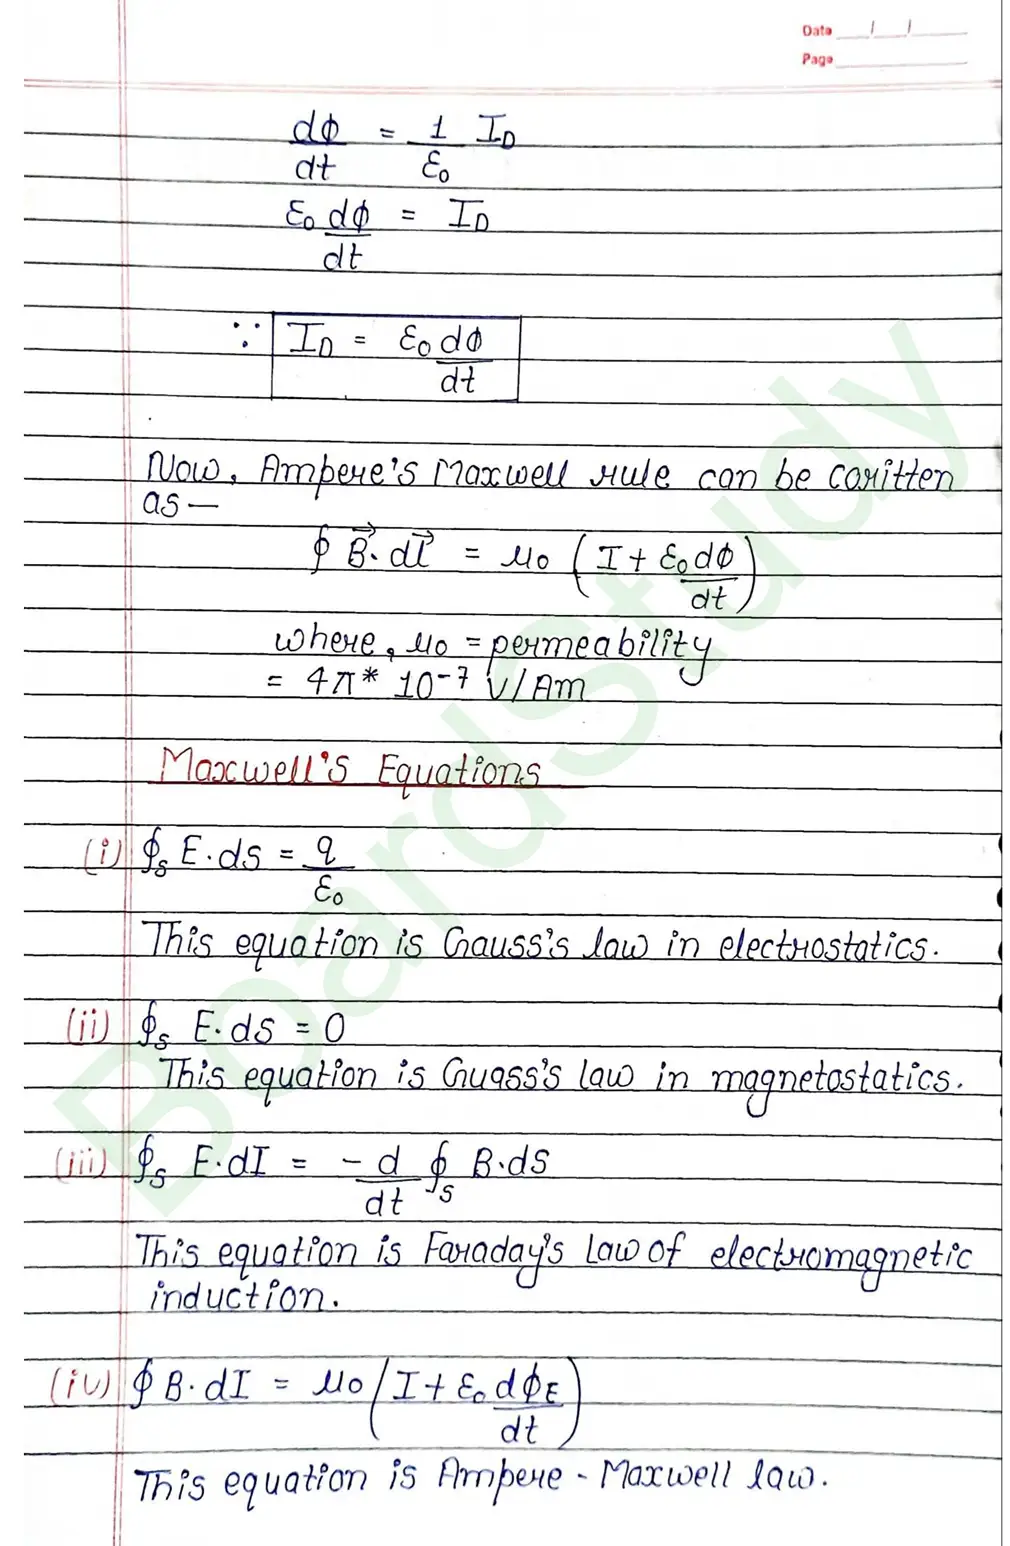 Date __/__/__
Page
dϕ/dt = 1/ε₀ I_D
ε₀ dϕ/dt = I_D
∵ I_D = ε₀ dϕ/dt
Now, Ampere's Maxwell rule can be written
as —
∮ B⃗. dl⃗ = μ₀ (I + ε₀ dϕ/dt)
where, μ₀ = permeability
= 4π* 10⁻⁷ V/Am
Maxwell's Equations
(i) ∮ₛ E.ds = q/ε₀
This equation is Gauss's law in electrostatics.
(ii) ∮ₛ E.ds = 0
This equation is Guass's law in magnetostatics.
(iii) ∮ₛ E.dI = -d/dt ∮ₛ B.ds
This equation is Faraday's Law of electromagnetic
induction.
(iv) ∮ B.dI = μ₀ (I + ε₀ dϕ_E/dt)
This equation is Ampere - Maxwell law.
BoardStudy